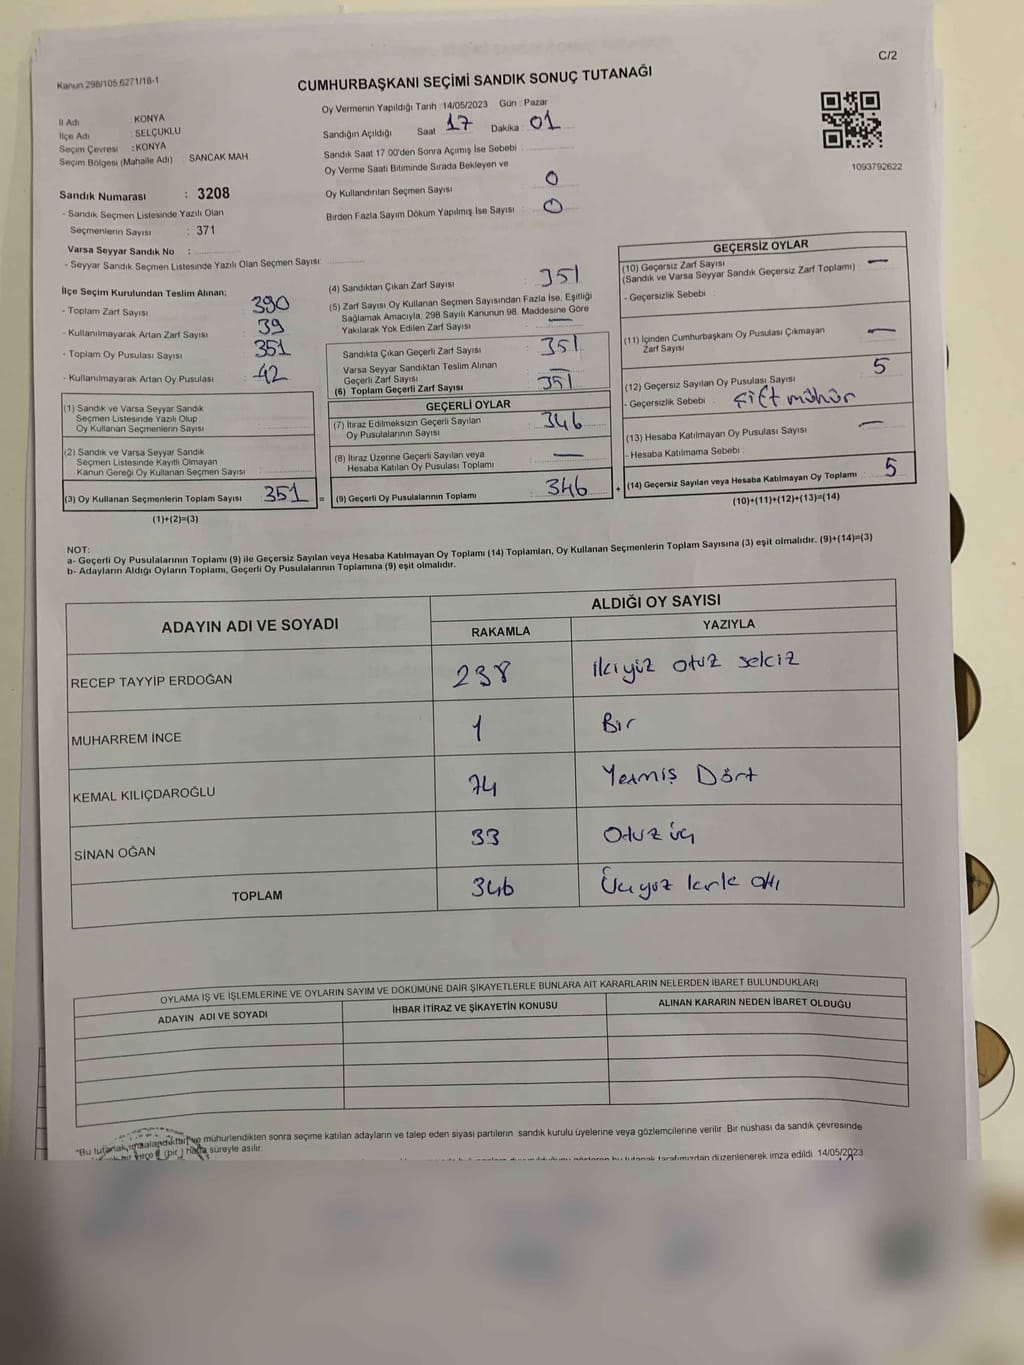 C/2
Kanun:298/105.6271/18-1
CUMHURBAŞKANI SEÇİMİ SANDIK SONUÇ TUTANAĞI
İl Adı : KONYA
İlçe Adı : SELÇUKLU
Seçim Çevresi : KONYA
Seçim Bölgesi (Mahalle Adı) : SANCAK MAH
Sandık Numarası : 3208
- Sandık Seçmen Listesinde Yazılı Olan
Seçmenlerin Sayısı : 371
Varsa Seyyar Sandık No :
- Seyyar Sandık Seçmen Listesinde Yazılı Olan Seçmen Sayısı:
Oy Vermenin Yapıldığı Tarih : 14/05/2023 Gün : Pazar
Sandığın Açıldığı Saat 17 Dakika : 01
Sandık Saat 17:00'den Sonra Açımış İse Sebebi :
Oy Verme Saati Bitiminde Sırada Bekleyen ve
Oy Kullandırılan Seçmen Sayısı : 0
Birden Fazla Sayım Döküm Yapılmış İse Sayısı : 0
1093792622
İlçe Seçim Kurulundan Teslim Alınan;
- Toplam Zarf Sayısı : 390
- Kullanılmayarak Artan Zarf Sayısı : 39
- Toplam Oy Pusulası Sayısı : 351
- Kullanılmayarak Artan Oy Pusulası : 42
(1) Sandık ve Varsa Seyyar Sandık
Seçmen Listesinde Yazılı Olup
Oy Kullanan Seçmenlerin Sayısı :
(2) Sandık ve Varsa Seyyar Sandık
Seçmen Listesinde Kayıtlı Olmayan
Kanun Gereği Oy Kullanan Seçmen Sayısı :
(3) Oy Kullanan Seçmenlerin Toplam Sayısı : 351 =
(1)+(2)=(3)
(4) Sandıktan Çıkan Zarf Sayısı : 351
(5) Zarf Sayısı Oy Kullanan Seçmen Sayısından Fazla İse, Eşitliği
Sağlamak Amacıyla, 298 Sayılı Kanunun 98. Maddesine Göre
Yakılarak Yok Edilen Zarf Sayısı : —
Sandıkta Çıkan Geçerli Zarf Sayısı : 351
Varsa Seyyar Sandıktan Teslim Alınan
Geçerli Zarf Sayısı : —
(6) Toplam Geçerli Zarf Sayısı : 351
GEÇERLİ OYLAR
(7) İtiraz Edilmeksizin Geçerli Sayılan
Oy Pusulalarının Sayısı : 346
(8) İtiraz Üzerine Geçerli Sayılan veya
Hesaba Katılan Oy Pusulası Toplamı : —
(9) Geçerli Oy Pusulalarının Toplamı : 346 +
GEÇERSİZ OYLAR
(10) Geçersiz Zarf Sayısı
(Sandık ve Varsa Seyyar Sandık Geçersiz Zarf Toplamı) : —
- Geçersizlik Sebebi :
(11) İçinden Cumhurbaşkanı Oy Pusulası Çıkmayan
Zarf Sayısı : —
(12) Geçersiz Sayılan Oy Pusulası Sayısı : 5
- Geçersizlik Sebebi : Çift mühür
(13) Hesaba Katılmayan Oy Pusulası Sayısı : —
- Hesaba Katılmama Sebebi :
(14) Geçersiz Sayılan veya Hesaba Katılmayan Oy Toplamı : 5
(10)+(11)+(12)+(13)=(14)
NOT:
a- Geçerli Oy Pusulalarının Toplamı (9) ile Geçersiz Sayılan veya Hesaba Katılmayan Oy Toplamı (14) Toplamları, Oy Kullanan Seçmenlerin Toplam Sayısına (3) eşit olmalıdır. (9)+(14)=(3)
b- Adayların Aldığı Oyların Toplamı, Geçerli Oy Pusulalarının Toplamına (9) eşit olmalıdır.
ADAYIN ADI VE SOYADI ALDIĞI OY SAYISI
RAKAMLA YAZIYLA
RECEP TAYYİP ERDOĞAN 238 İkiyüz otuz sekiz
MUHARREM İNCE 1 Bir
KEMAL KILIÇDAROĞLU 74 Yetmiş Dört
SİNAN OĞAN 33 Otuz üç
TOPLAM 346 Üçyüz kırk altı
OYLAMA İŞ VE İŞLEMLERİNE VE OYLARIN SAYIM VE DÖKÜMÜNE DAİR ŞİKAYETLERLE BUNLARA AİT KARARLARIN NELERDEN İBARET BULUNDUKLARI
ADAYIN ADI VE SOYADI İHBAR İTİRAZ VE ŞİKAYETİN KONUSU ALINAN KARARIN NEDEN İBARET OLDUĞU
"Bu tutanak imzalandıktan ve mühürlendikten sonra seçime katılan adayların ve talep eden siyasi partilerin sandık kurulu üyelerine veya gözlemcilerine verilir. Bir nüshası da sandık çevresinde
bir (bir) hafta süreyle asılır.
bu tutanak tarafımızdan düzenlenerek imza edildi. 14/05/2023